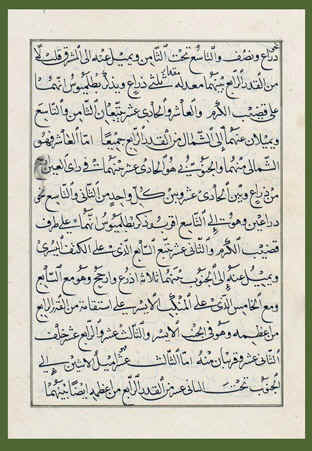 ذراع ونصف والتاسع تحت الثامن ويميل عنه الى المشرق قليلا
من القدر الرابع بينهما مقدار ثلثي ذراع ويذكر بطلميوس انهما
على قضيب الكرم والعاشر والحادى عشر يتبعان الثامن والتاسع
ويميلان عنهما الى الشمال من القدر الرابع جميعا اما العاشر فهو
الشمالى منهما والجنوبى هو الحادى عشر بينهما فى رأى العين
من ذراع وبين الحادى عشر وبين كل واحد من الثانى والتاسع نحو
ذراعين وهو الى التاسع اقرب وذكر بطلميوس انهما على طرف
قضيب الكرم والثانى عشر يتبع السابع الذى على الكتف اليسرى
ويميل عنه الى الجنوب بينهما ثلاثة اذرع وارجح وهو مع السابع
ومع الخامس الذى على المنكب الايسر على استقامة من القدر الرابع
من اعظمه وهو فى الجنب الايسر والثالث عشر والرابع عشر خلف
الثانى عشر وقريبان منه اما الثالث عشر اميل الاثنين الى
الجنوب تحت الثانى عشر من القدر الرابع من اعظمه ايضا بينهما